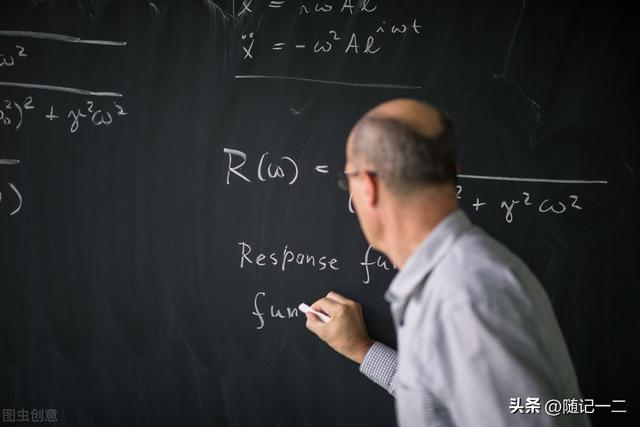 ẋ = iωAe
ẍ = -ω²Aeⁱωᵗ
ω²
)² + γ²ω²
)
R(ω) =
² + γ²ω²
Response fu
fun
图虫创意
头条 @随记一二